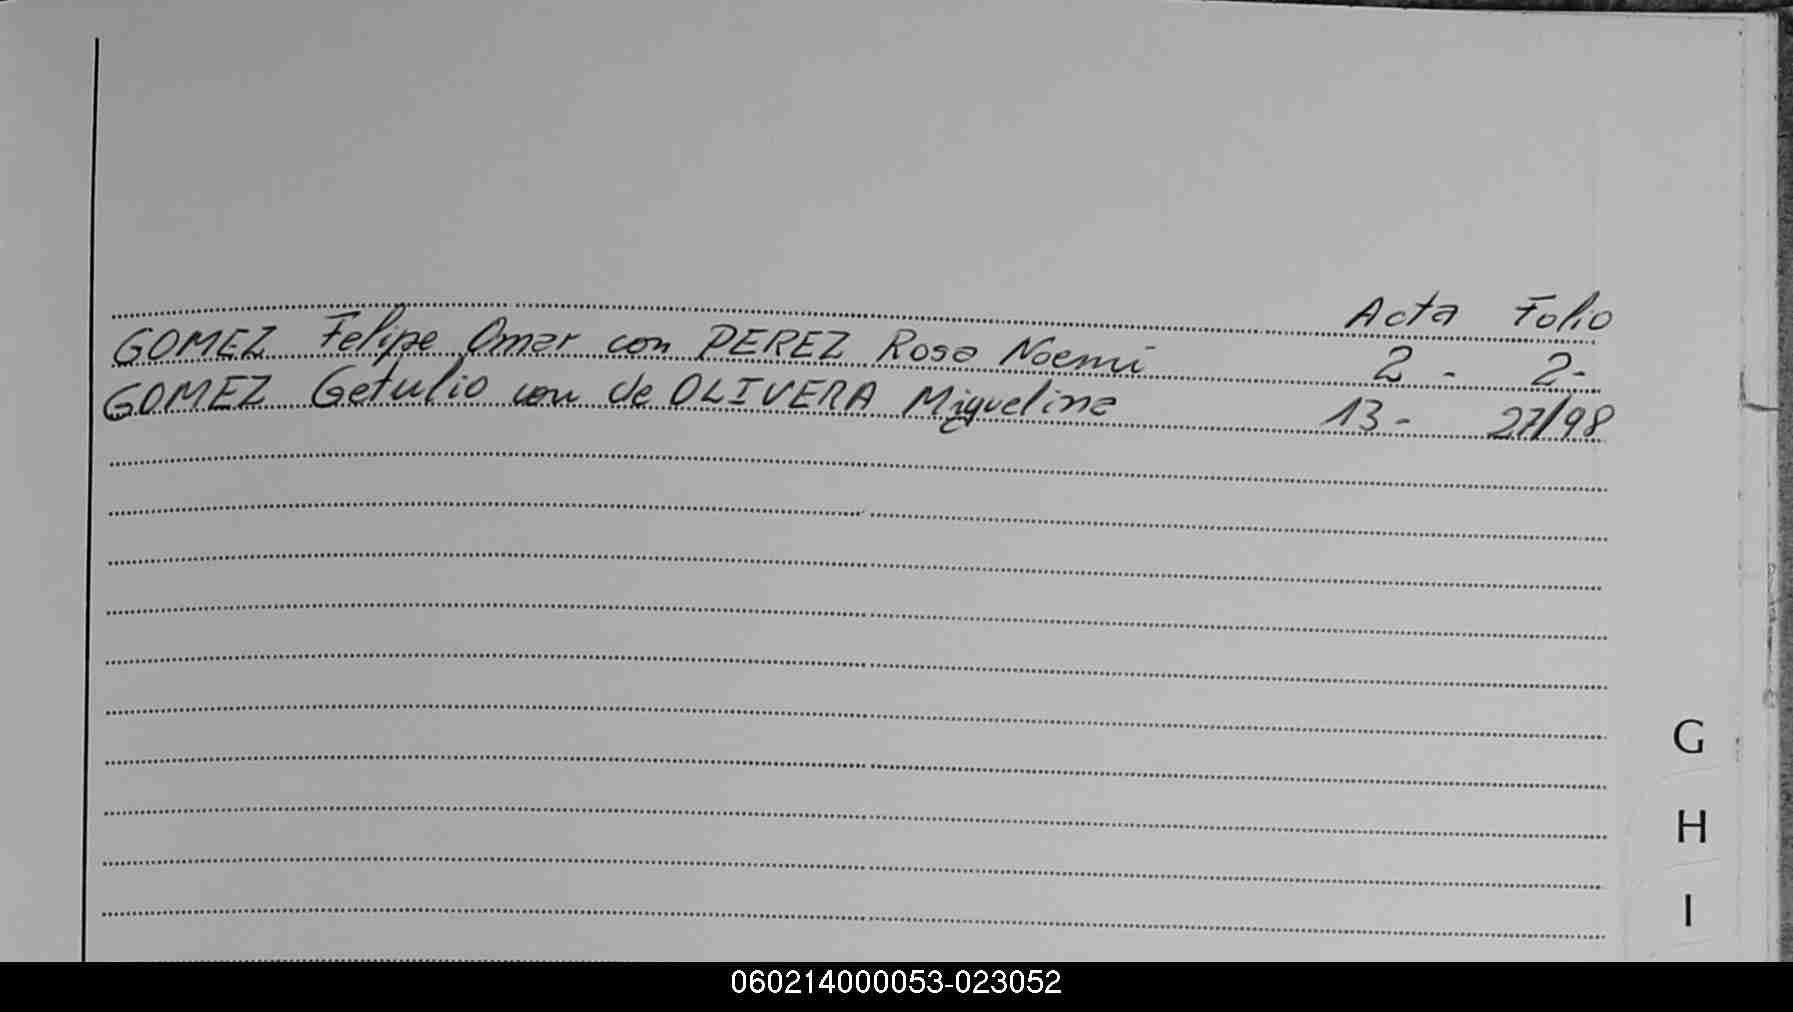 Acta Folio
GOMEZ Felipe Omar con PEREZ Rosa Noemi 2 - 2-
GOMEZ Getulio con de OLIVERA Miguelina 13 - 27/98
G
H
I
060214000053-023052